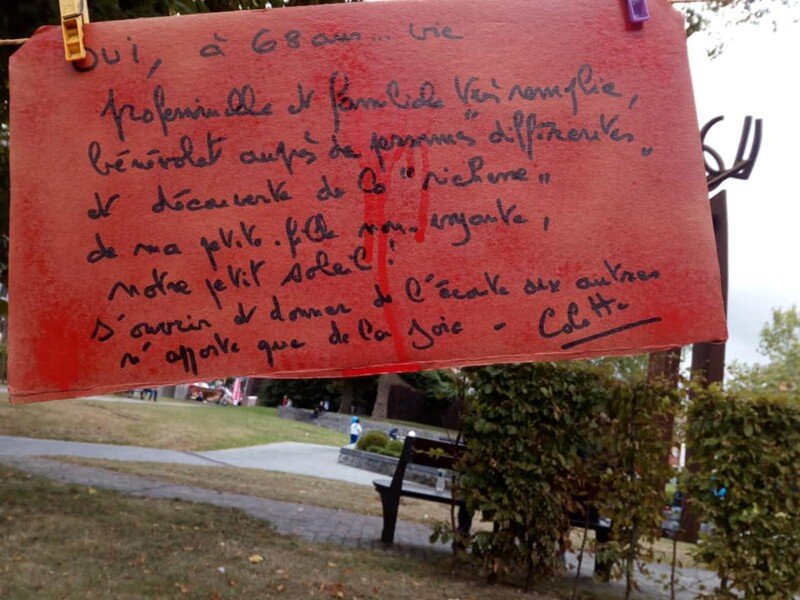 Oui, à 68 ans... vie
professionnelle et familiale très remplie,
bénévolat auprès de personnes "différentes"
et découverte de la "richesse"
de ma petite-fille non-voyante,
notre petit soleil!
s'ouvrir et donner de l'écoute aux autres
n'apporte que de la joie - Colette